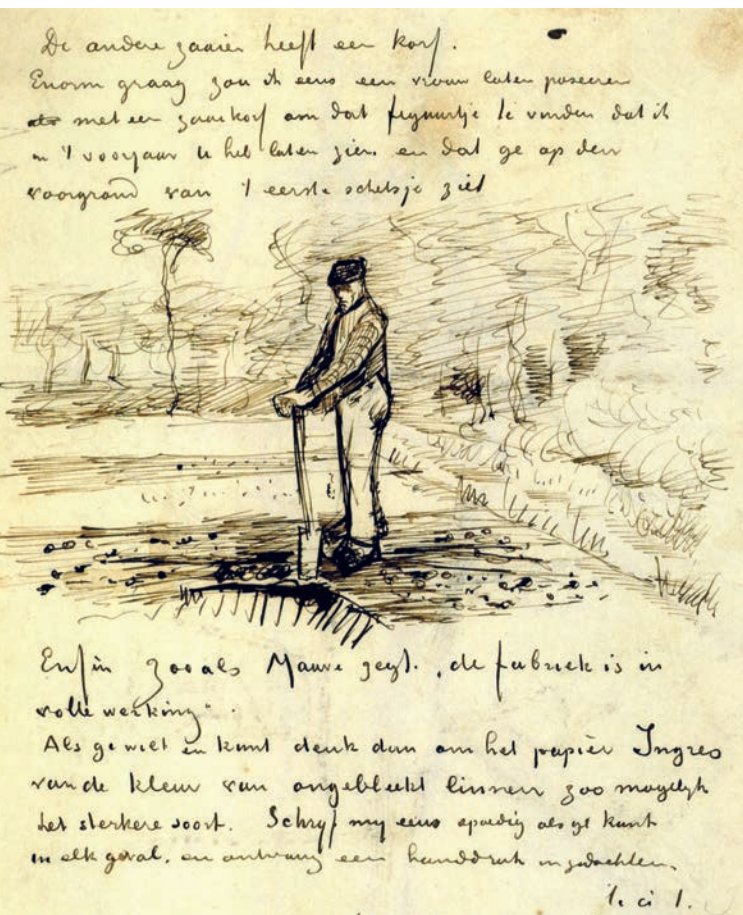 De andere zaaier heeft een korf.
Enorm graag zou ik eens een vrouw laten poseeren
met een zaaikorf om dat figuurtje te vinden dat ik
in 't voorjaar U heb laten zien en dat ge op den
voorgrond van 't eerste schetsje ziet
Enfin zooals Mauve zegt. „de fabriek is in
volle werking".
Als ge wilt en kunt denk dan om het papier Ingres
van de kleur van ongebleekt linnen zoo mogelijk
het sterkere soort. Schrijf mij eens spoedig als ge kunt
in elk geval, en ontvang een handdruk in gedachten.
t. à t.